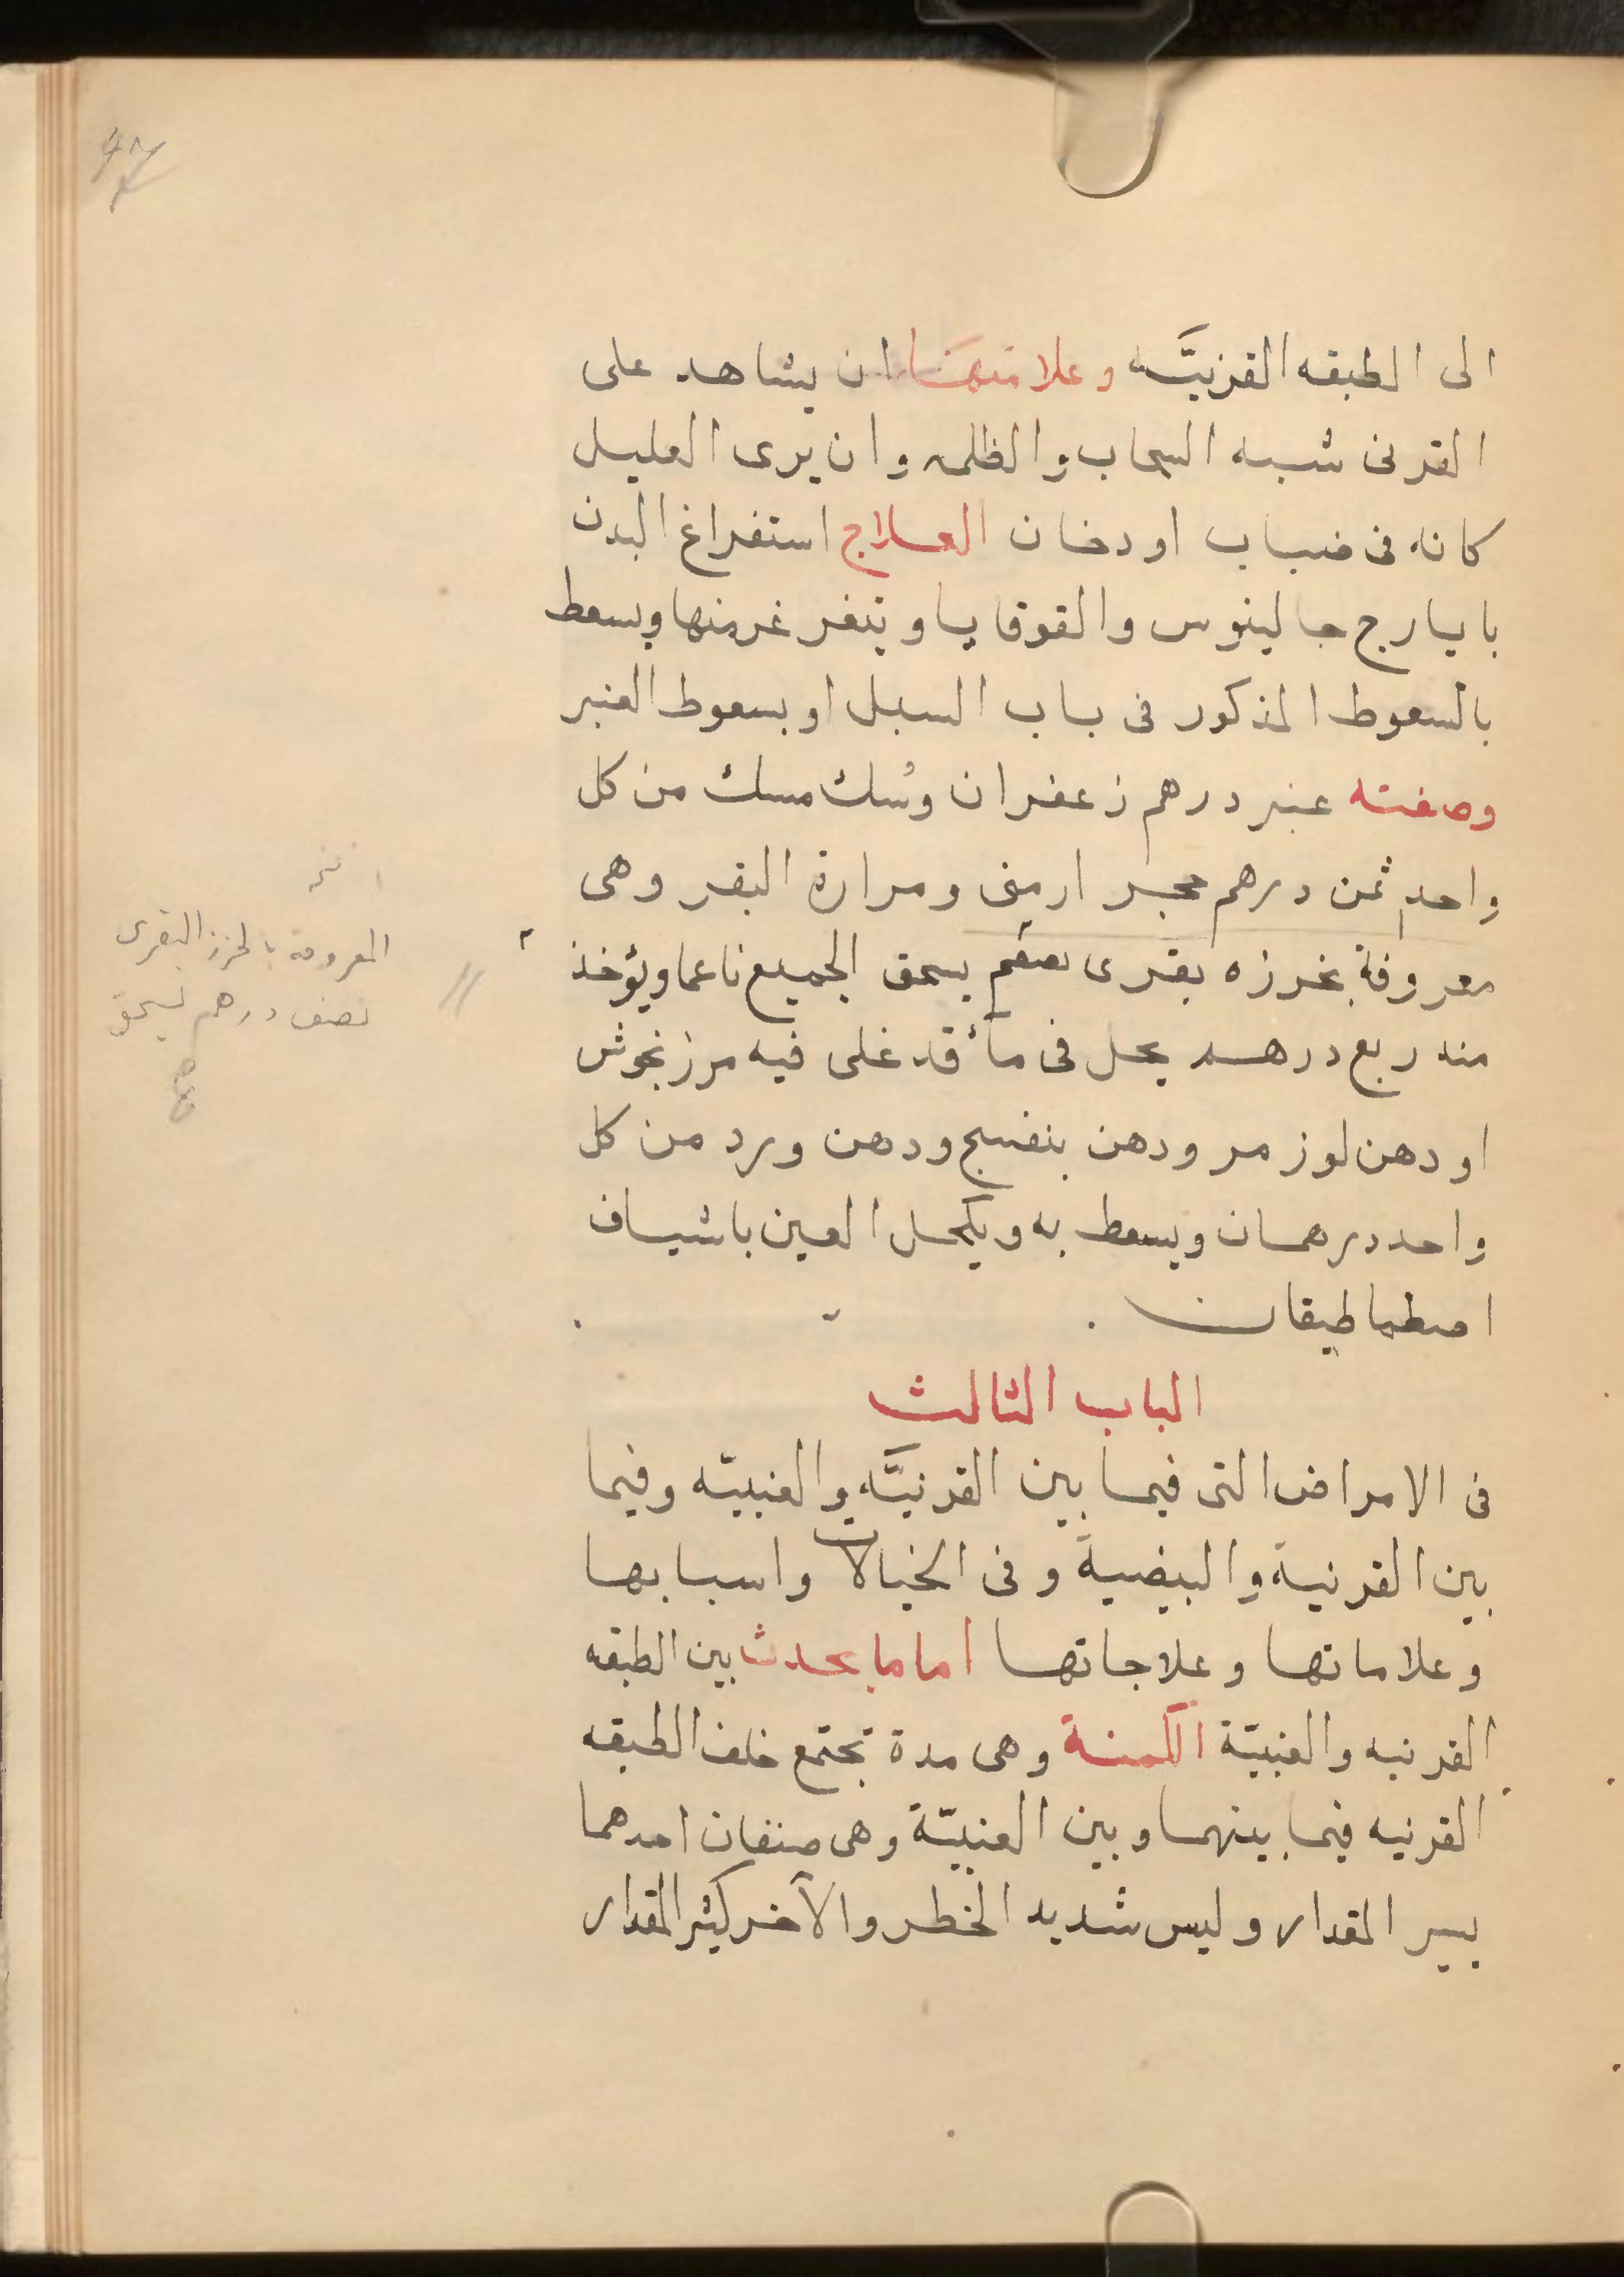 الى الطبقه القرنيَّه وعلامتها ان يشاهد على
القرنى شبه السحاب والظلمه وان يرى العليل
كانه فى ضباب او دخان العلاج استفراغ البدن
بايارج جالينوس والقوقايا ويتغرغر منها ويسعط
بالسعوط المذكور فى باب السبل او بسعوط العنبر
وصفته عنبر درهم زعفران وسُك مسك من كل
واحد ثمن درهم حجر ارمنى ومرارة البقر وهى
معروفة بخرزه بقرى يسحق الجميع ناعما ويؤخذ
منه ربع درهم يحل فى مآء قد غلى فيه مرزنجوش
او دهن لوز مر ودهن بنفسج ودهن ورد من كل
واحد درهمان ويسعط به ويكحل العين باشياف
اصطماطيقان
الباب الثالث
فى الامراض التى فيما بين القرنيَّه والعنبيّه وفيما
بين القرنية والبيضية وفى الخيالات واسبابها
وعلاماتها وعلاجاتها اما ما يحدث بين الطبقه
القرنيه والعنبيّة الكمنة وهى مدة تجتمع خلف الطبقه
القرنيه فيما بينهما وبين العنبيّة وهى صنفان احدهما
يسير المقدار وليس شديد الخطر والآخر كثير المقدار
المعروفة بالخرز البقرى
نصف درهم يسحق